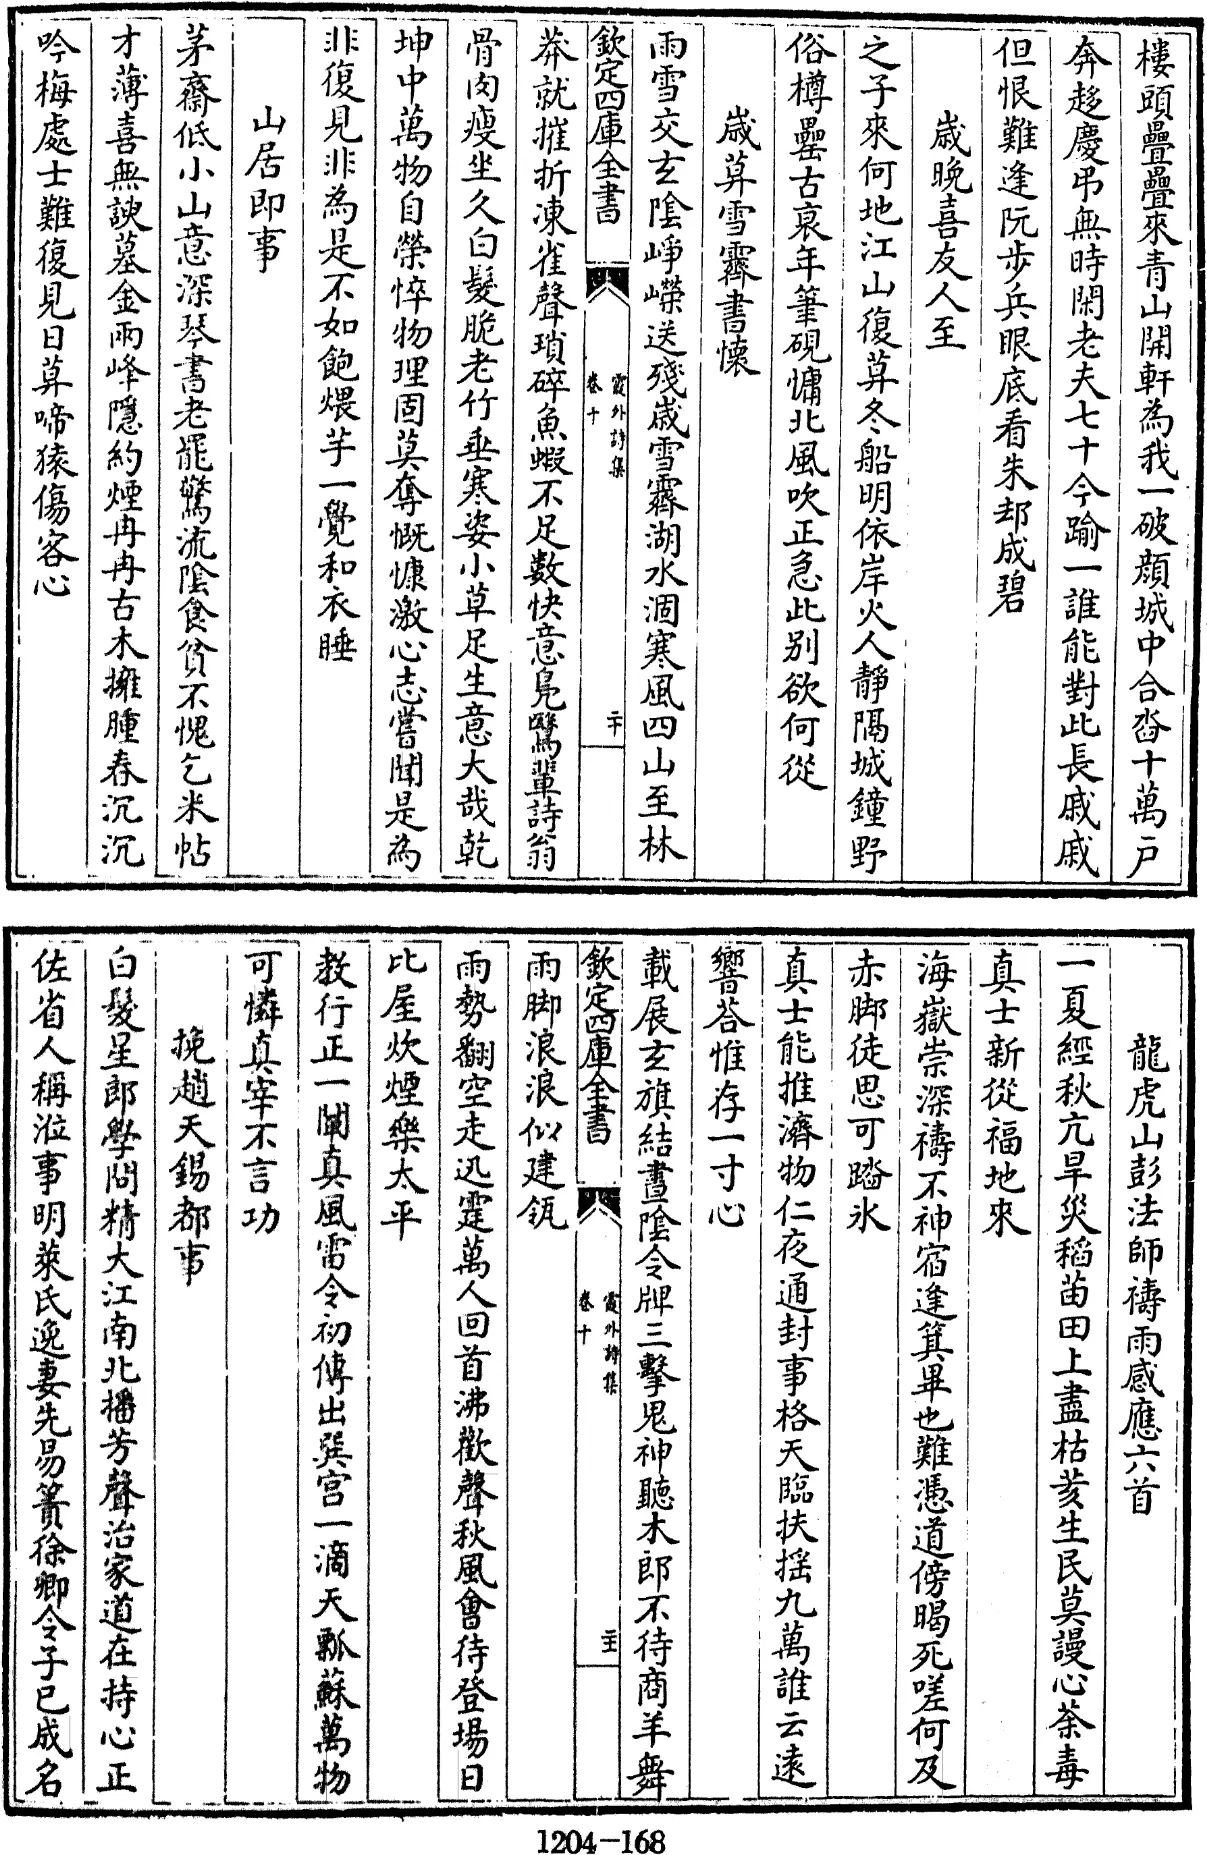 樓頭疊疊來青山開軒為我一破顔城中合沓十萬戸
奔趍慶弔無時閑老夫七十今踰一誰能對此長戚戚
但恨難逢阮步兵眼底看朱却成碧
歳晩喜友人至
之子來何地江山復茣冬船明依岸火人静隔城鐘野
俗樽罍古衰年筆硯慵北風吹正急此别欲何從
歳茣雪霽書懐
雨雪交玄陰崢嶸送殘歳雪霽湖水涸寒風四山至林
欽定四庫全書
霞外詩集
卷十
二十
莽就摧折凍雀聲瑣碎魚蝦不足數快意鳬鷖輩詩翁
骨肉瘦坐久白髪脆老竹垂寒姿小草足生意大哉乾
坤中萬物自榮悴物理固莫奪慨慷激心志嘗聞是為
非復見非為是不如飽煨芋一覺和衣睡
山居即事
茅齋低小山意深琴書老罷驚流陰食貧不愧乞米帖
才薄喜無諛墓金兩峰隱約煙冉冉古木擁腫春沉沉
吟梅處士難復見日茣啼猿傷客心
龍虎山彭法師禱雨感應六首
一夏經秋亢旱災稻苗田上盡枯荄生民莫謾心荼毒
真士新從福地來
海嶽崇深禱不神宿逢箕畢也難憑道傍暍死嗟何及
赤脚徒思可踏氷
真士能推濟物仁夜通封事格天臨扶揺九萬誰云逺
響荅惟存一寸心
載展玄旗結晝陰令牌三擊鬼神聽木郎不待商羊舞
欽定四庫全書
霞外詩集
卷十
二十一
雨脚浪浪似建瓴
雨勢翻空走迅霆萬人回首沸歡聲秋風會待登場日
比屋炊煙樂太平
教行正一闡真風雷令初傳出巽宫一滴天瓢蘇萬物
可憐真宰不言功
挽趙天錫都事
白髮星郎學問精大江南北播芳聲治家道在持心正
佐省人稱涖事明萊氏逸妻先易簀徐卿令子已成名
1204-168